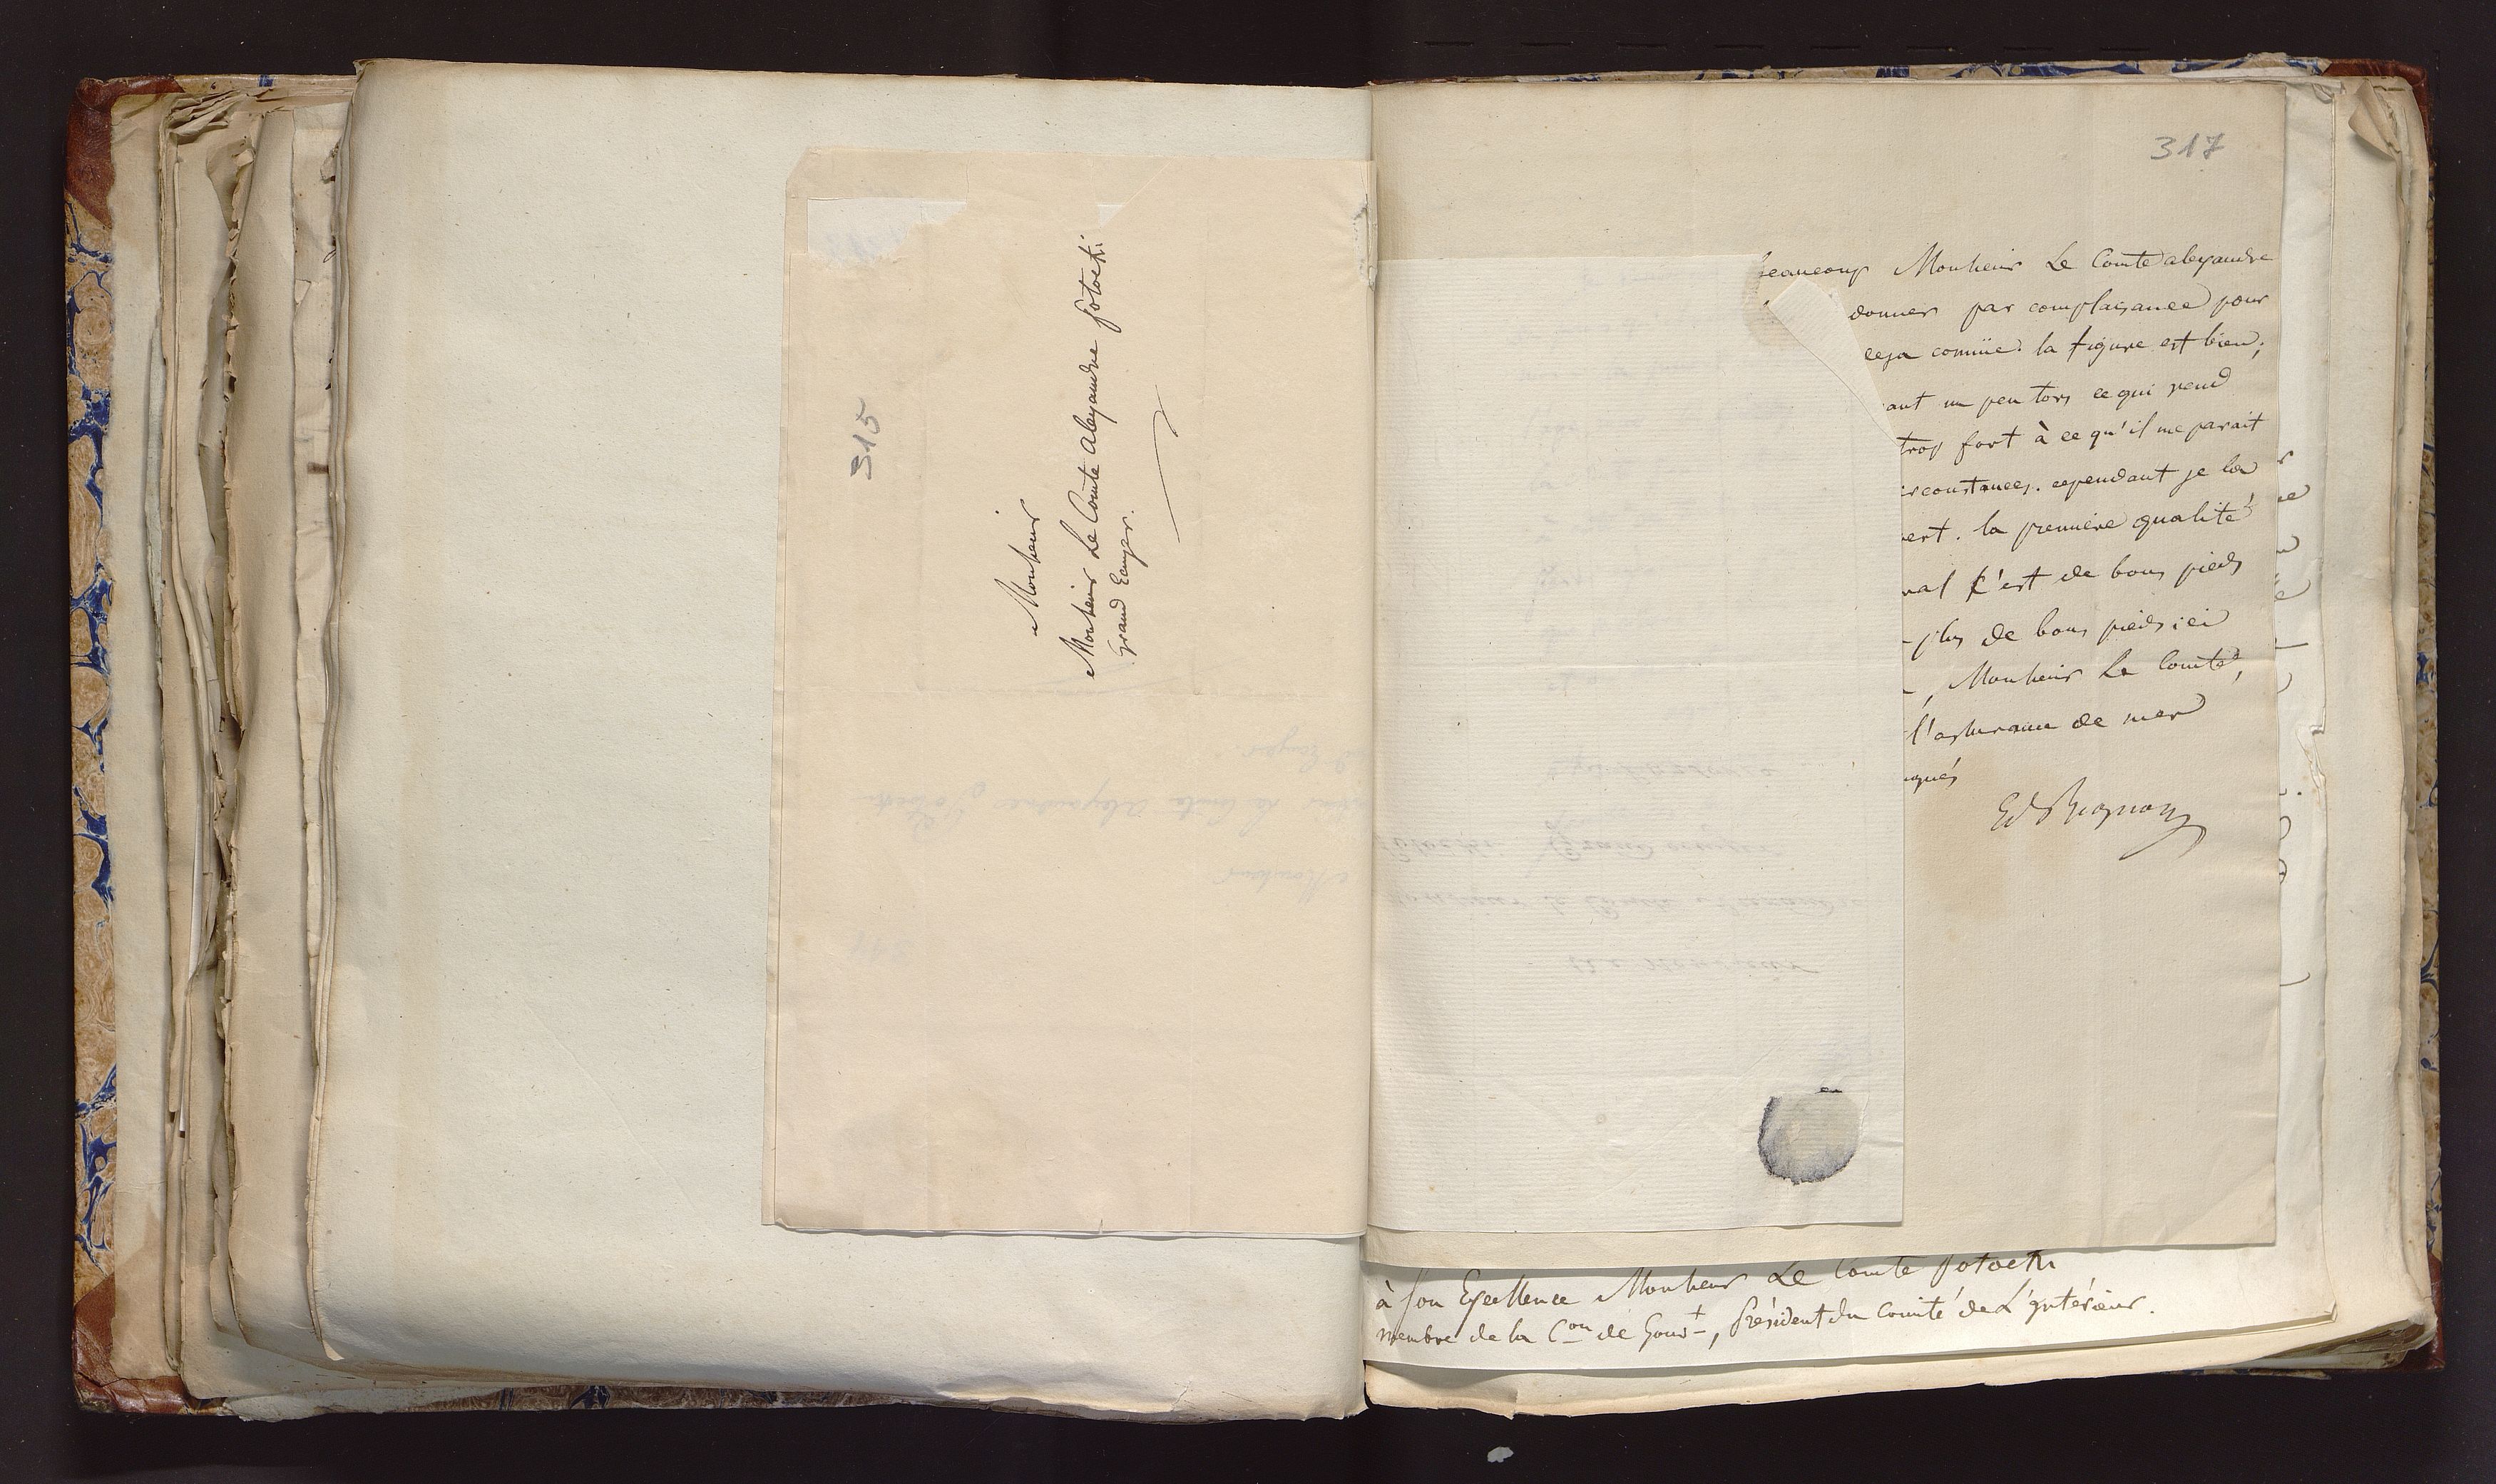 315
Monsieur
Monsieur Le Comte alexandre potocki
grand Ecuyer.
317
beaucoup Monsieur Le Comte alexandre
donner par complaisance pour
la figure est bien,
ant un peu tors ce qui rend
trop fort à ce qu'il me parait
irconstances. cependant je la
ert. la première qualité
val c'est de bons pieds
plus de bons pieds ici
, Monsieur Le Comte,
l'assurance de mes
ngués
Ed Bignon
à son Excellence Monsieur Le Comte Potocki
membre de la Con de Gouvt, président du Comité de L'intérieur.